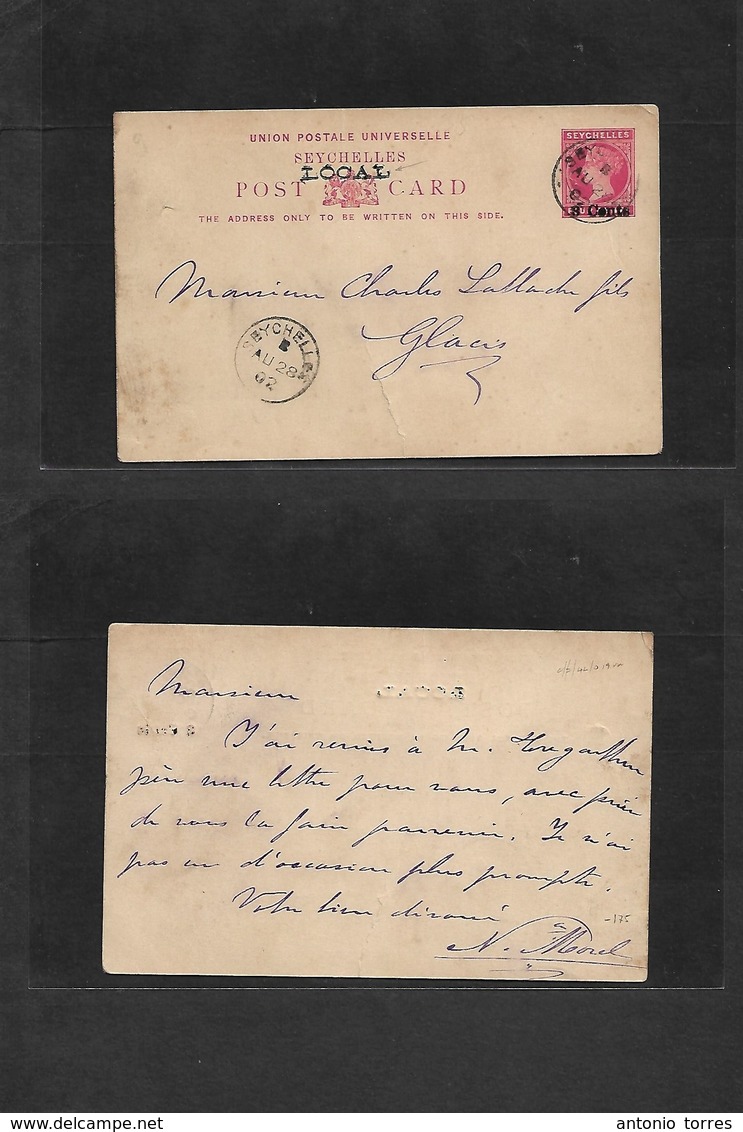 UNION POSTALE UNIVERSELLE
SEYCHELLES
LOCAL
POST CARD
THE ADDRESS ONLY TO BE WRITTEN ON THIS SIDE.
SEYCHELLES
3 Cents
B
AU 28
02
Monsieur Charles Lablache fils
Glacis
SEYCHELLES
B
AU 28
02
Monsieur
J'ai remis à M. Tregarthen
père une lettre pour vous, avec prière
de vous la faire parvenir. Je n'ai
pas eu d'occasion plus prompte.
Votre bien dévoué
N. Morel
-175
antonio torres